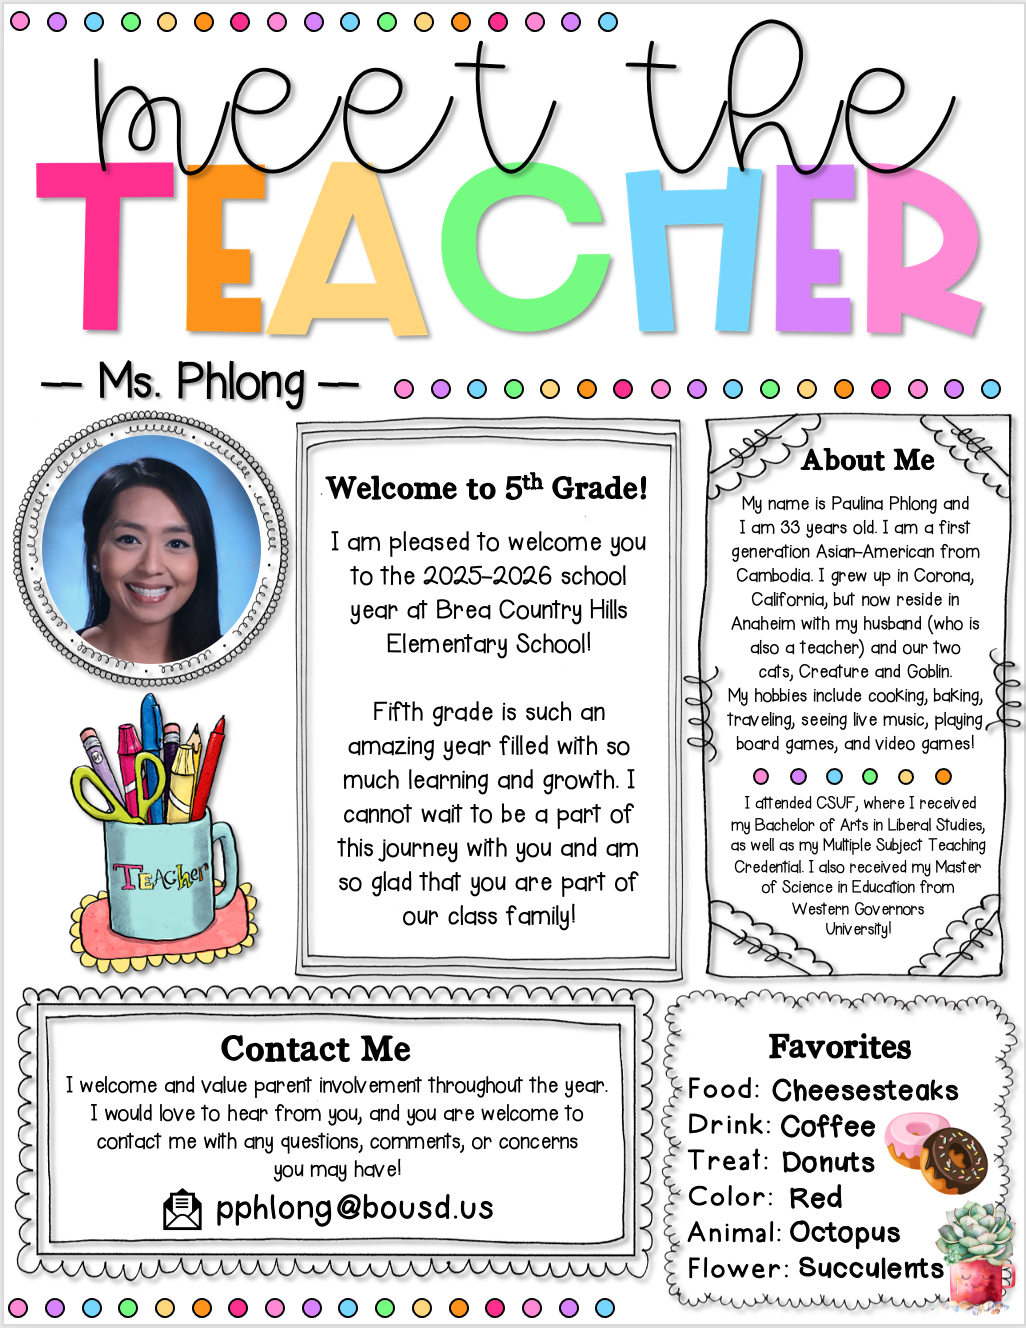 meet the
TEACHER
— Ms. Phlong —
Welcome to 5th Grade!
I am pleased to welcome you
to the 2025-2026 school
year at Brea Country Hills
Elementary School!
Fifth grade is such an
amazing year filled with so
much learning and growth. I
cannot wait to be a part of
this journey with you and am
so glad that you are part of
our class family!
About Me
My name is Paulina Phlong and
I am 33 years old. I am a first
generation Asian-American from
Cambodia. I grew up in Corona,
California, but now reside in
Anaheim with my husband (who is
also a teacher) and our two
cats, Creature and Goblin.
My hobbies include cooking, baking,
traveling, seeing live music, playing
board games, and video games!
I attended CSUF, where I received
my Bachelor of Arts in Liberal Studies,
as well as my Multiple Subject Teaching
Credential. I also received my Master
of Science in Education from
Western Governors
University!
Teacher
Contact Me
I welcome and value parent involvement throughout the year.
I would love to hear from you, and you are welcome to
contact me with any questions, comments, or concerns
you may have!
pphlong@bousd.us
Favorites
Food: Cheesesteaks
Drink: Coffee
Treat: Donuts
Color: Red
Animal: Octopus
Flower: Succulents